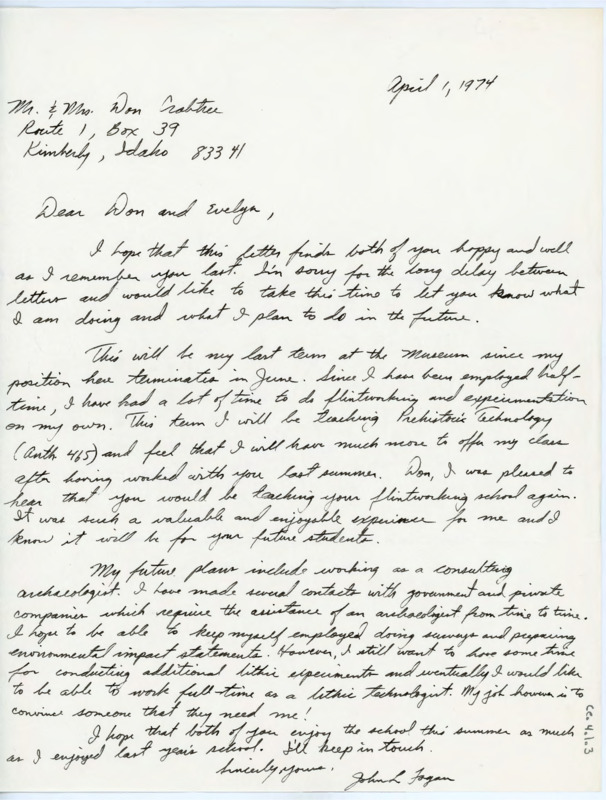 April 1, 1974
Mr. & Mrs. Don Crabtree
Route 1, Box 39
Kimberly, Idaho 83341
Dear Don and Evelyn,
I hope that this letter finds both of you happy and well
as I remember you last. I'm sorry for the long delay between
letters and would like to take this time to let you know what
I am doing and what I plan to do in the future.
This will be my last term at the Museum since my
position here terminates in June. Since I have been employed half-
time, I have had a lot of time to do flintworking and experimentation
on my own. This term I will be teaching Prehistoric Technology
(Anth 465) and feel that I will have much more to offer my class
after having worked with you last summer. Don, I was pleased to
hear that you would be teaching your flintworking school again.
It was such a valuable and enjoyable experience for me and I
know it will be for your future students.
My future plans include working as a consulting
archaeologist. I have made several contacts with government and private
companies which require the assistance of an archaeologist from time to time.
I hope to be able to keep myself employed doing surveys and preparing
environmental impact statements. However, I still want to have some time
for conducting additional lithic experiments and eventually I would like
to be able to work full-time as a lithic technologist. My job however is to
convince someone that they need me!
I hope that both of you enjoy the school this summer as much
as I enjoyed last year's school. I'll keep in touch.
Sincerely yours,
John L Fagan
CC.4.1.3